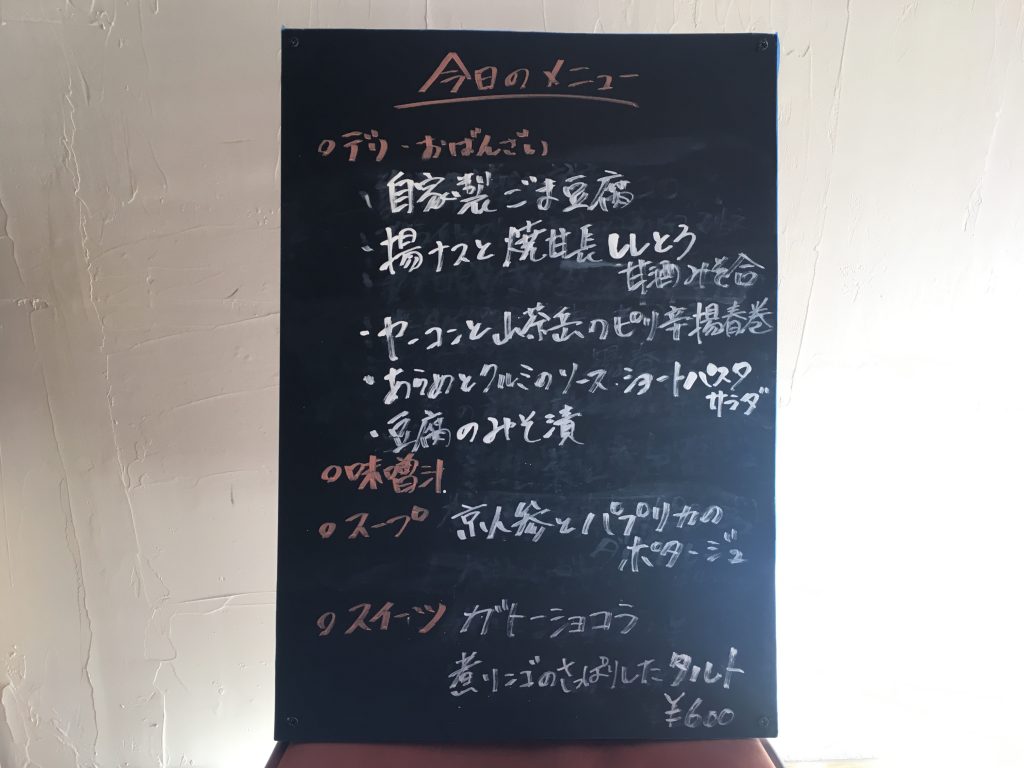 今日のメニュー
○デリ・おばんざい
・自家製ごま豆腐
・揚ナスと焼甘長ししとう
甘酒みそ合
・ヤーコンと山茶岳のピリ辛揚春巻
・あらめとクルミのソース・ショートパスタ
サラダ
・豆腐のみそ漬
○味噌汁
○スープ 京人参とパプリカの
ポタージュ
○スイーツ ガトーショコラ
煮リンゴのさっぱりしたタルト
¥600